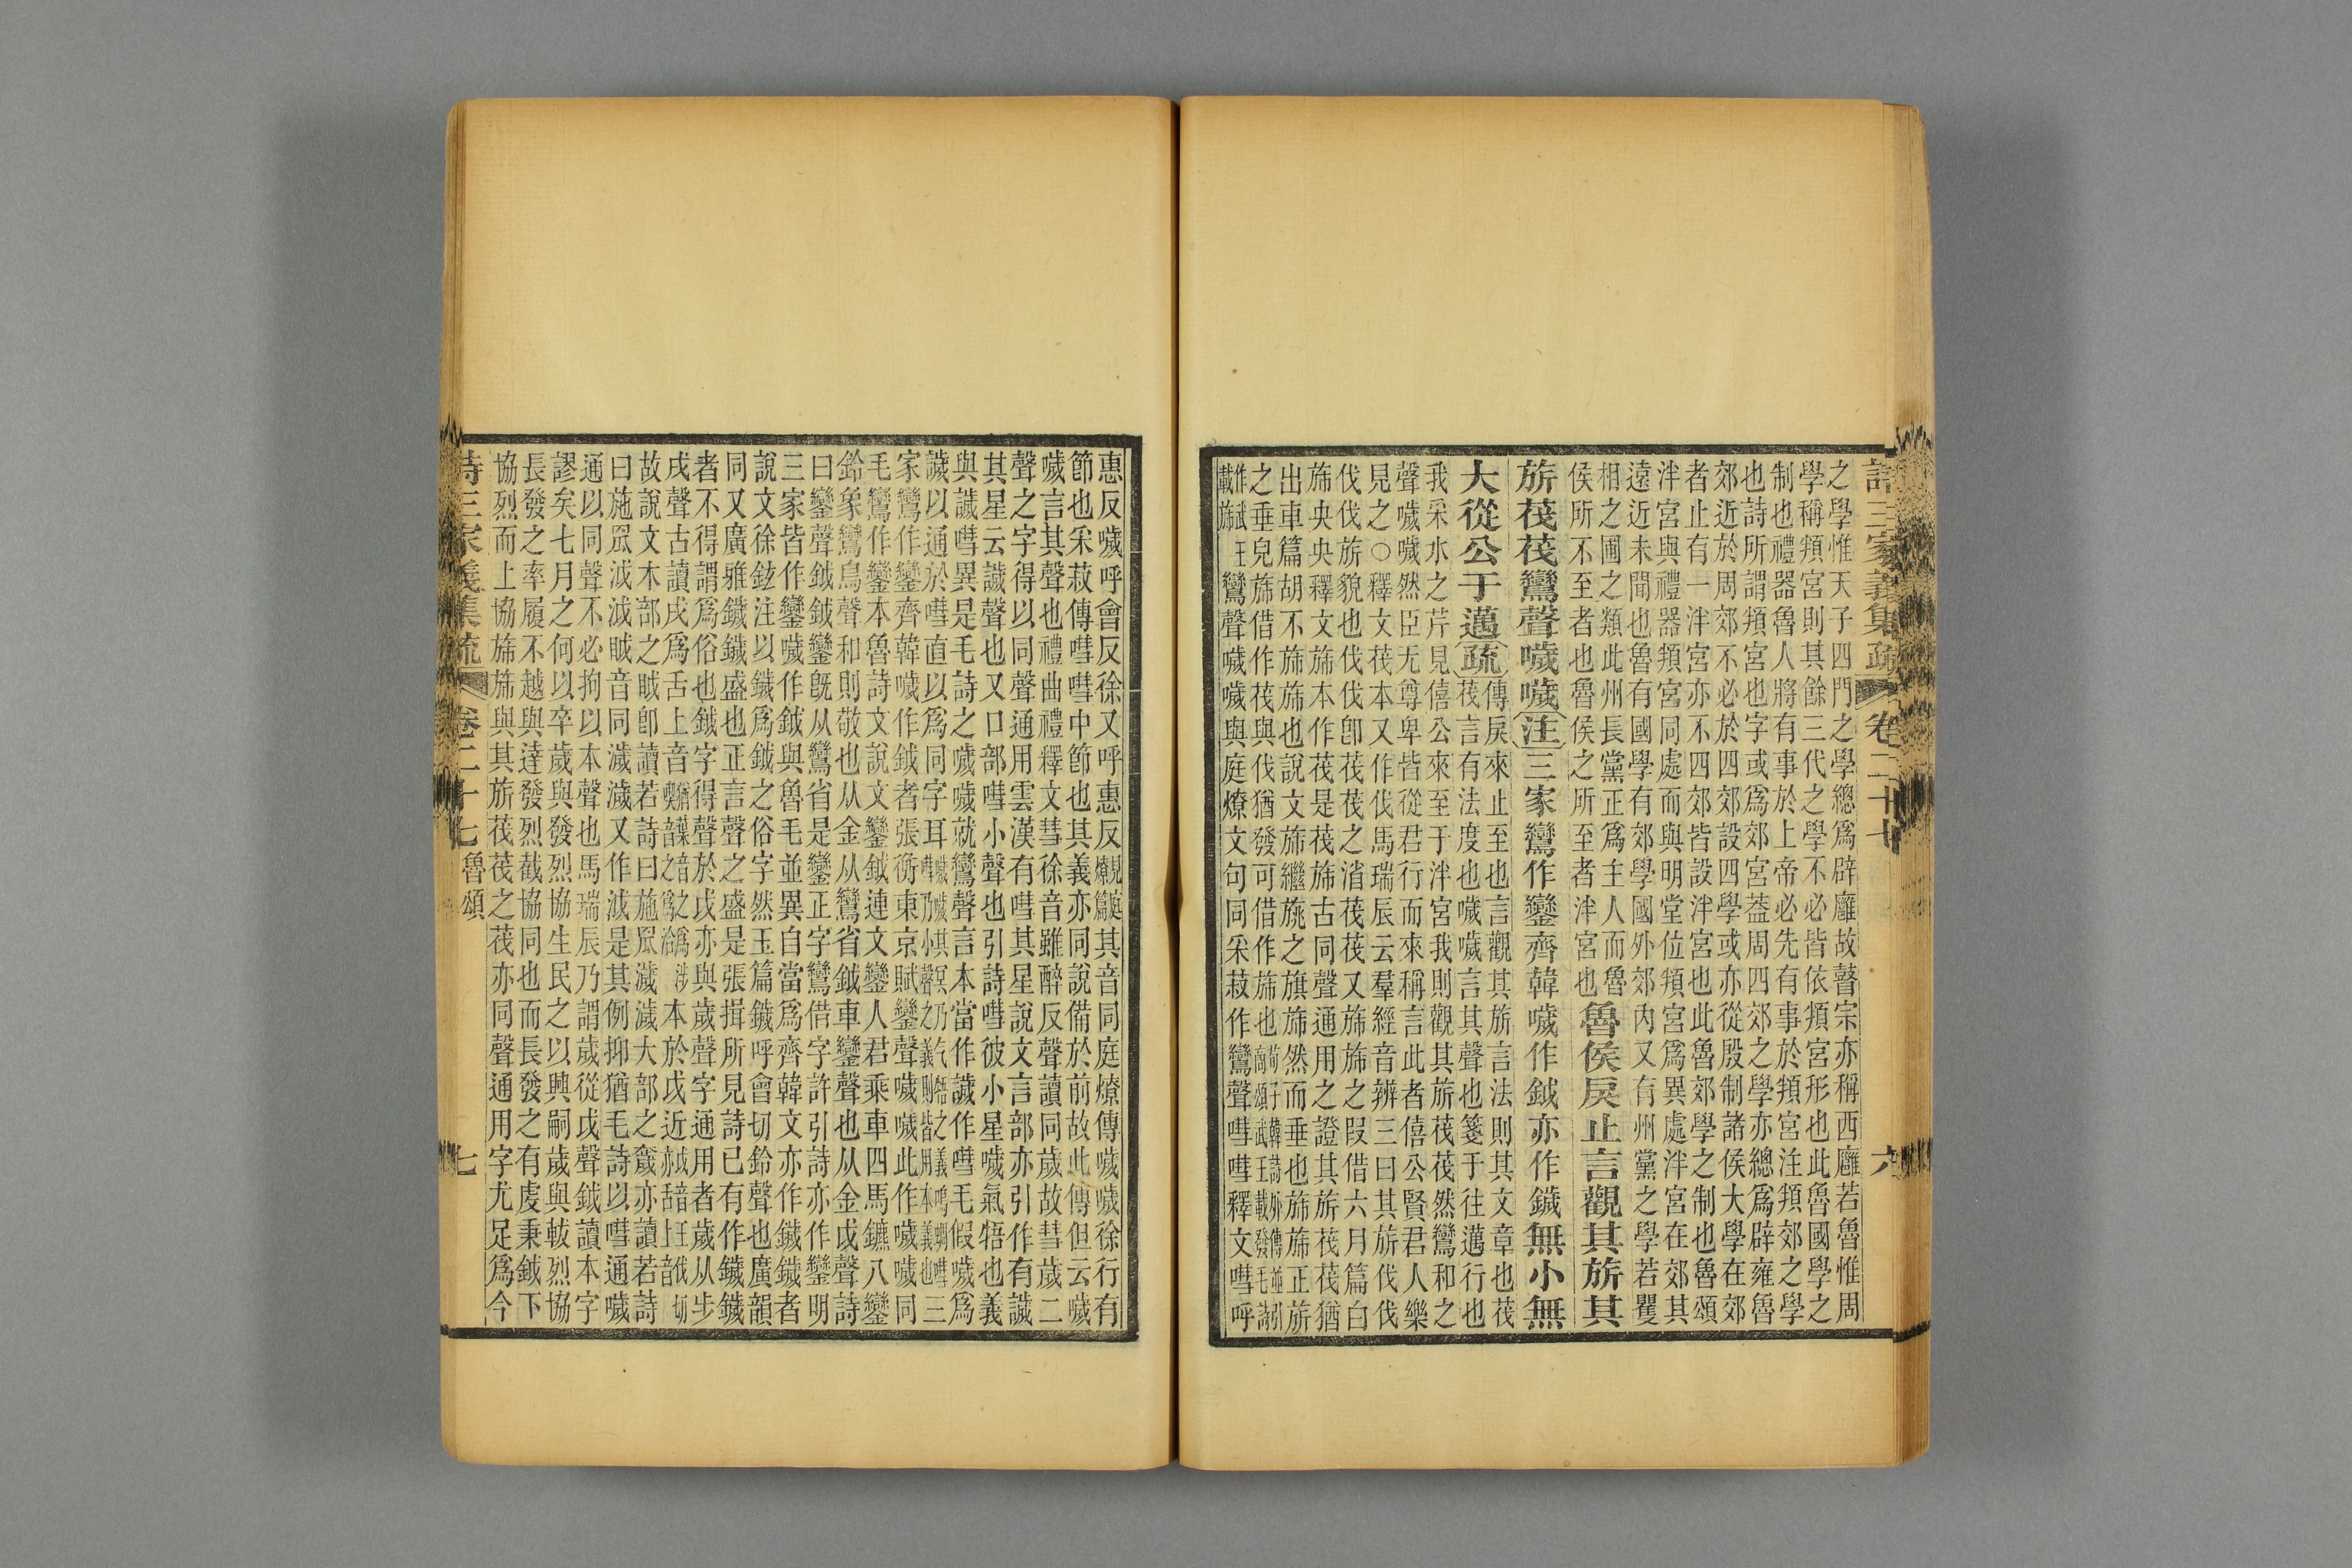 詩三家義集疏 卷二十七 六
之學惟天子四門之學總爲辟廱故瞽宗亦稱西廱若魯惟周
學稱頖宮則其餘三代之學不必皆依頖宮形也此魯國學之
制也禮器魯人將有事於上帝必先有事於頖宮注頖郊之學
也詩所謂頖宮也字或爲郊宮葢周四郊之學亦總爲辟雍魯
郊近於周郊不必於四郊設四學或亦從殷制諸侯大學在郊
者止有一泮宮亦不四郊皆設泮宮也此魯郊學之制也魯頌
泮宮與禮器頖宮同處而與明堂位頖宮爲異處泮宮在郊其
遠近未聞也魯有國學有郊學國外郊內又有州黨之學若矍
相之圃之類此州長黨正爲主人而魯
侯所不至者也魯侯之所至者泮宮也
魯侯戾止言觀其旂其
旂茷茷鸞聲噦噦注三家鸞作鑾齊韓噦作鉞亦作鐬無小無
大從公于邁疏
傳戾來止至也言觀其旂言法則其文章也茷
茷言有法度也噦噦言其聲也箋于往邁行也
我采水之芹見僖公來至于泮宮我則觀其旂茷茷然鸞和之
聲噦噦然臣无尊卑皆從君行而來稱言此者僖公賢君人樂
見之○釋文茷本又作伐馬瑞辰云羣經音辨三曰其旂伐伐
伐伐旂貌也伐伐卽茷茷之渻茷茷又旆旆之叚借六月篇白
旆央央釋文旆本作茷是茷旆古同聲通用之證其旂茷茷猶
出車篇胡不旆旆也說文旆繼旐之旗旆然而垂也旆旆正旂
之垂皃旆借作茷與伐猶發可借作旆也荀子韓詩外傳並引
商頌武王載發毛詩
作載旆
鸞聲噦噦與庭燎文句同采菽作鸞聲嘒嘒釋文嘒呼
惠反噦呼會反徐又呼惠反見庭燎篇其音同庭燎傳噦噦徐行有
節也采菽傳嘒嘒中節也其義亦同說備於前故此傳但云噦
噦言其聲也禮曲禮釋文彗徐音雖醉反聲讀同歲故彗歲二
聲之字得以同聲通用雲漢有嘒其星說文言部亦引作有𧬨
其星云𧬨聲也又口部嘒小聲也引詩嘒彼小星噦氣牾也義
與𧬨嘒異是毛詩之噦噦就鸞聲言本當作𧬨作嘒毛假噦爲
𧬨以通於嘒直以爲同字耳
家鸞作鑾齊韓噦作鉞者張衡東京賦鑾聲噦噦此作噦噦同
毛鸞作鑾本魯詩文說文鑾鉞連文鑾人君乘車四馬鑣八鑾
鈴象鸞鳥聲和則敬也从金从鸞省鉞車鑾聲也从金戉聲詩
曰鑾聲鉞鉞鑾旣从鸞省是鑾正字鸞借字許引詩亦作鑾明
三家皆作鑾噦作鉞與魯毛並異自當爲齊韓文亦作鐬鐬者
說文徐鉉注以鐬爲鉞之俗字然玉篇鐬呼會切鈴聲也廣韻
同又廣雅鐬鐬盛也正言聲之盛是張揖所見詩已有作鐬鐬
者不得謂爲俗也鉞字得聲於戉亦與歲聲字通用者歲从步
戌聲古讀戌爲舌上音
故說文木部之㕹卽讀若詩曰施罛濊濊大部之奯亦讀若詩
曰施罛泧泧㕹音同濊濊又作泧是其例抑猶毛詩以嘒通噦
通以同聲不必拘以本聲也馬瑞辰乃謂歲從戉聲鉞讀本字
謬矣七月之何以卒歲與發烈協生民之以興嗣歲與軷烈協
長發之率履不越與達發烈截協同也而長發之有虔秉鉞下
協烈而上協旆旆與其旂茷茷之茷亦同聲通用字尤足爲今
詩三家義集疏 卷二十七 魯頌 七